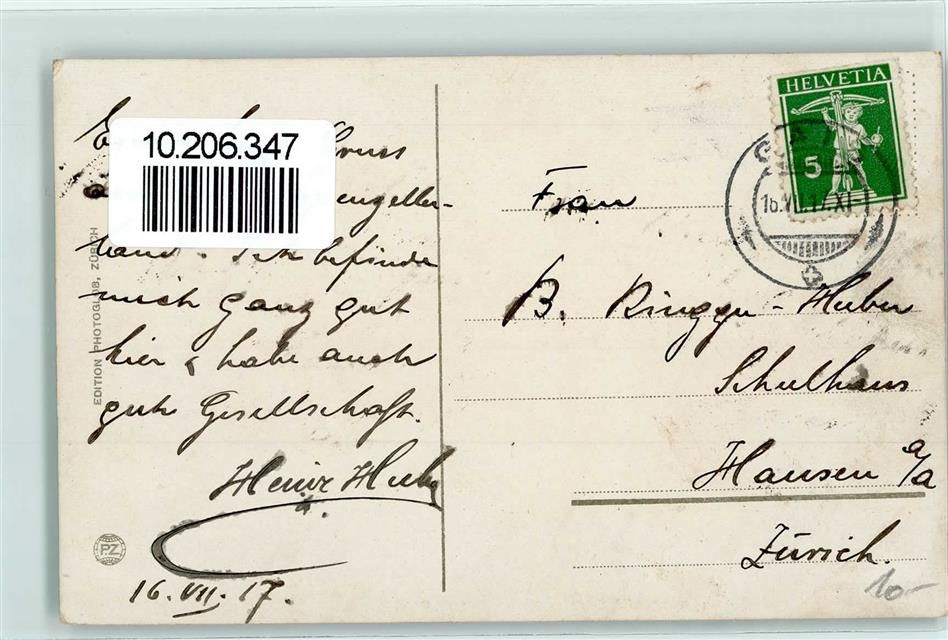 10.206.347
Gruss
Ich befinde
mich ganz gut
hier & habe auch
gute Gesellschaft.
16.VII.17.
EDITION PHOTOGLOB, ZÜRICH
PZ
HELVETIA
5
16.VII.17.XI-
Frau
B. Ringger-Huber
Schulhaus
Hausen a/a
Zürich.
10-